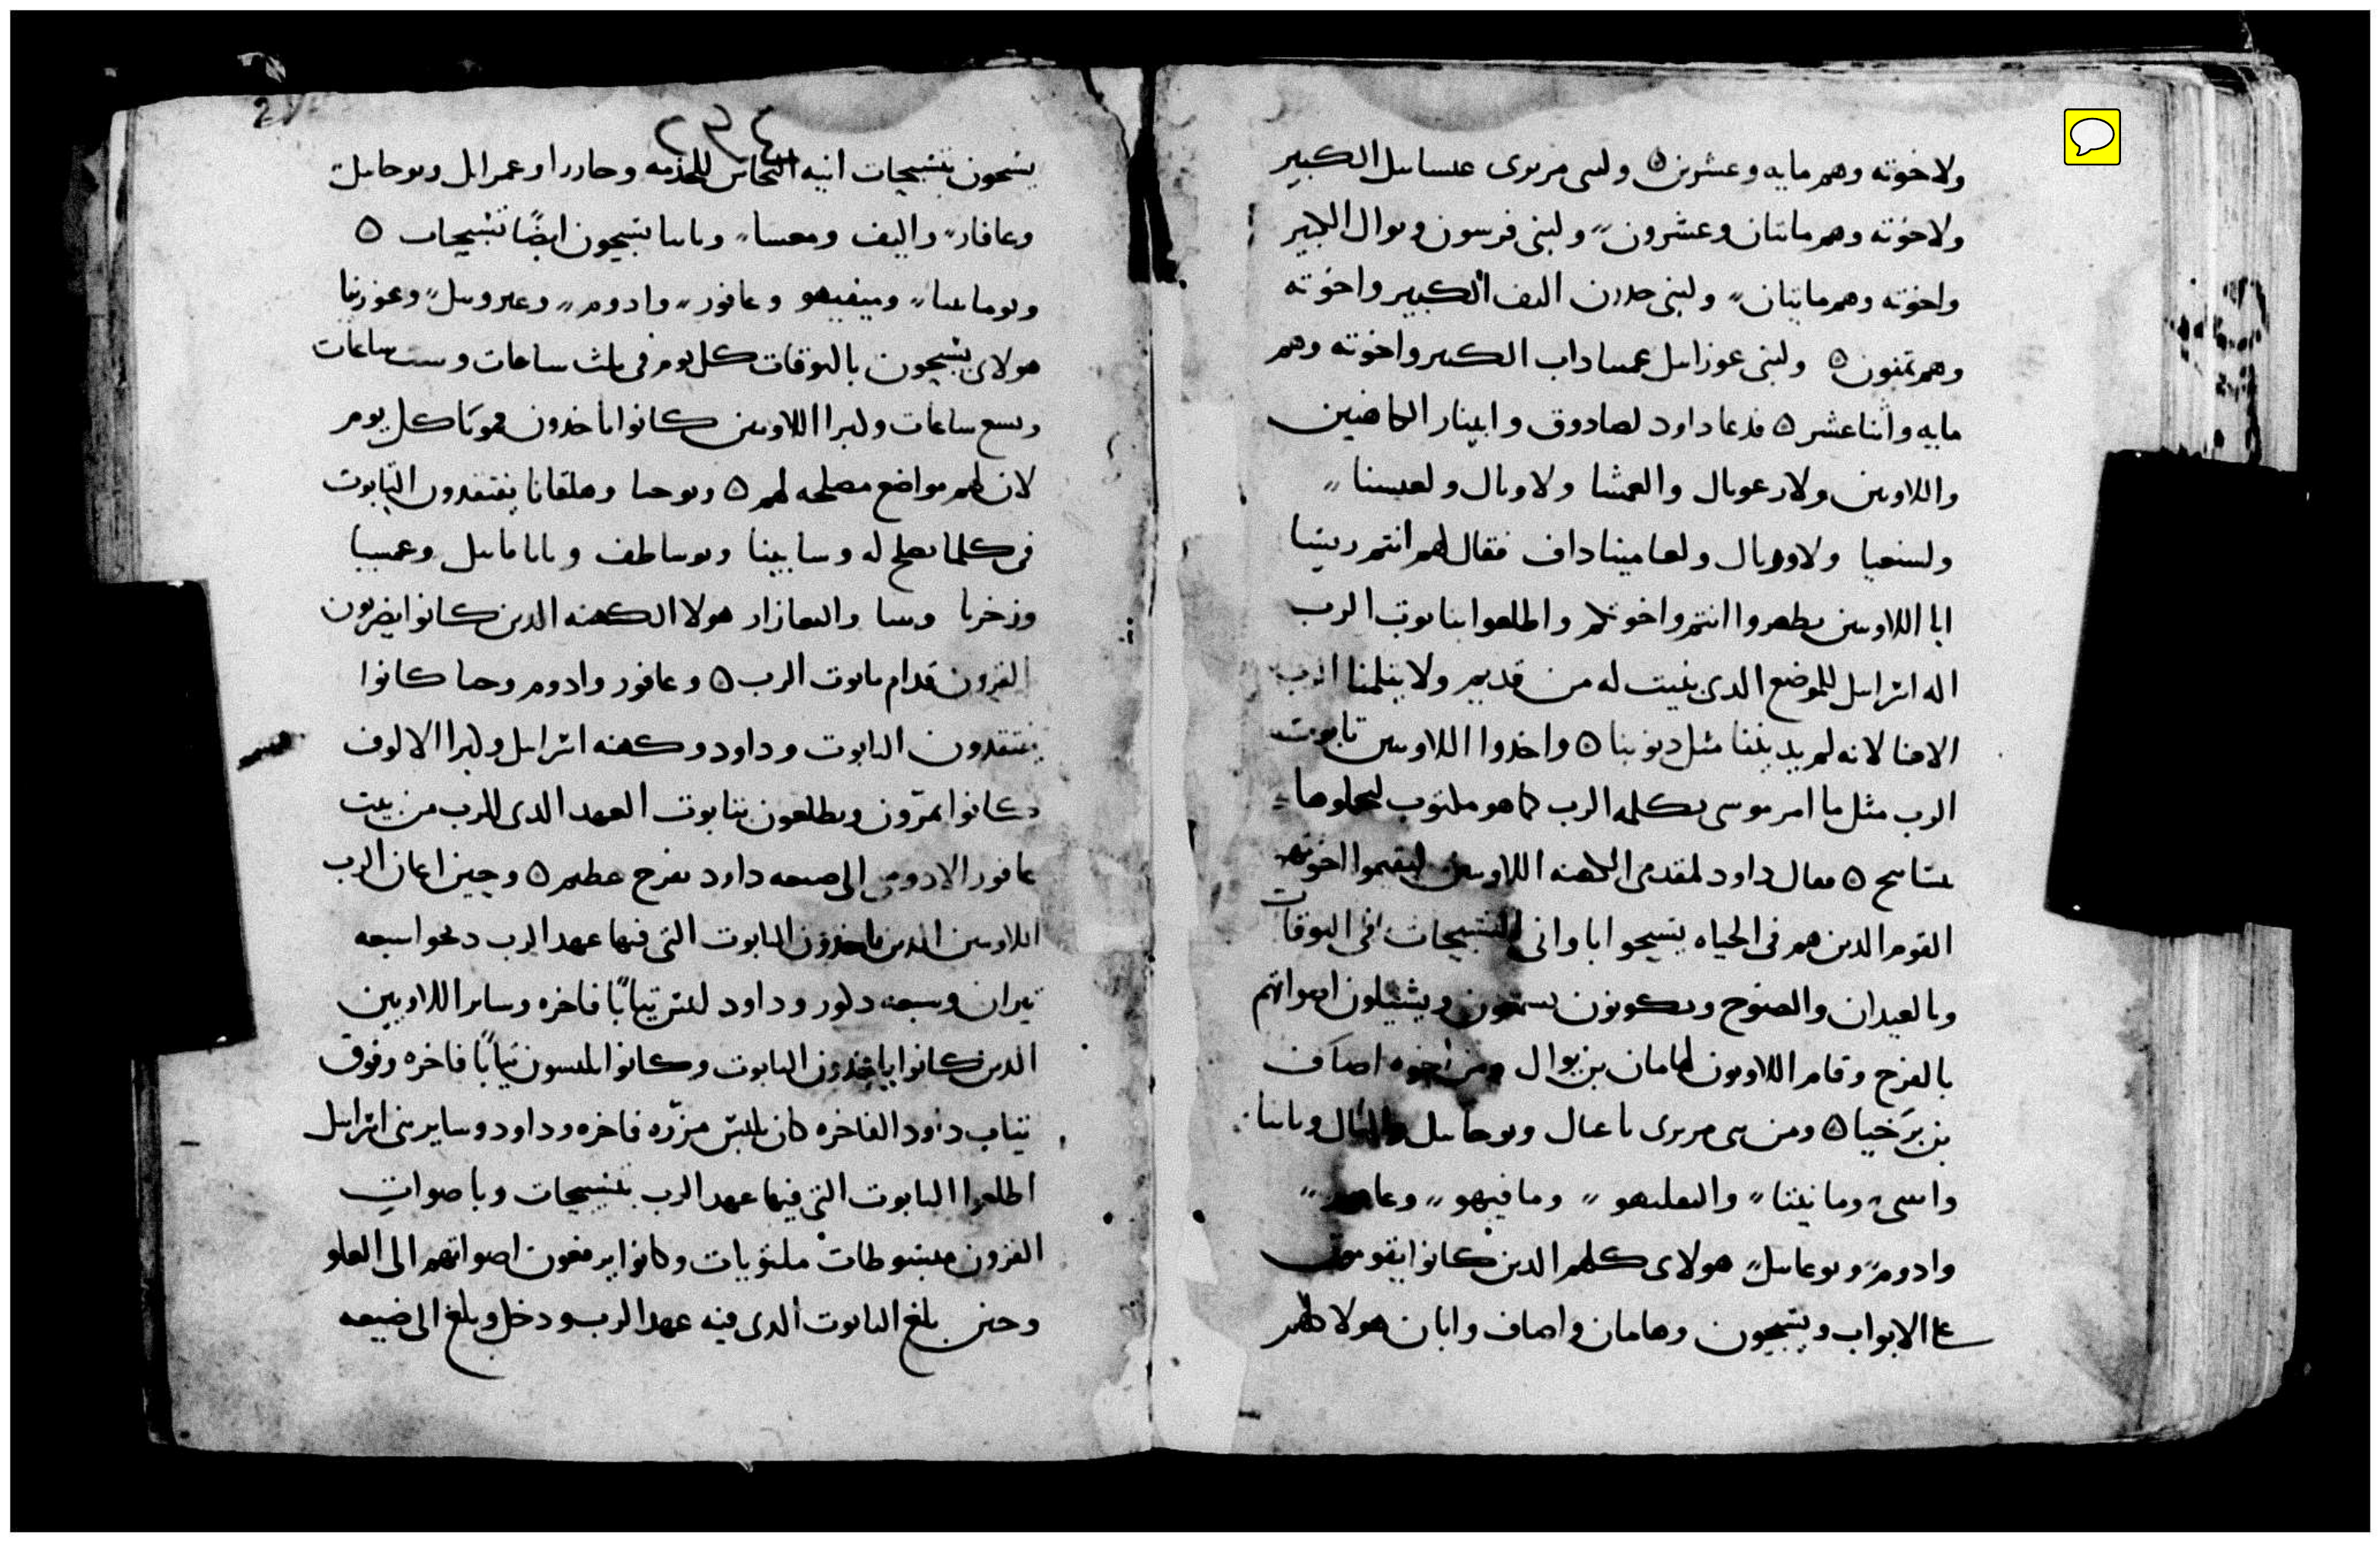 ولاخوته وهم مايه وعشرين ۞ ولبنى مررى عساىىل الكبير
ولاخوته وهم ماتتان وعشرون ولبنى فرسون ويوال الكبير
واخوته وهم مايتان ولبنى حدرن الىف الكبير واخوته
وهم تمنون ۞ ولبنى عوزاىيل عمىىاداب الكبير واخوته وهم
مايه واثناعشر ۞ فدعا داود لصادوق وابيتار الكاهنين
واللاويين ولارعويال والعمشا ولاويال ولعيسنا
ولسمعيا ولاوهيال ولعاميناداف فقال لهم انتم ريسا
ابا اللاويين تطهروا انتم واخوتكم واطلعوا بتابوت الرب
اله اسراييل للموضع الدى بنيت له من قديم ولا يثلمنا الرب
الاهنا لانه لم يديننا مثل ديوننا ۞ واخدوا اللاويين تابوت
الرب مثل ما امر موسى بكلمه الرب كما هو مكتوب ليحملوها
بمتاىىح ۞ فقال داود لمقدمى الكهنه اللاويين ليقيموا اخوتهم
القوم الدين هم فى الحياه يسبحوا باوانى التسبيحات فى البوقات
وبالعيدان والصنوج ويكونون يسمعون ويشيلون اصواتهم
بالفرح وقام اللاويون لهامان بن يوال ومن اخوه اصاف
بن برخيا ۞ ومن بنى مررى ياعىال ويوحاىىل والىال وباىىا
واسى وماىىتا والىعلىىهو ومافيهو وعاىىور
وادوم ويوعاىىل هولاى كلهم الدين كانوا يقومون
على الابواب ويسبحون وهامان واصاف وابان هولا كلهم
٢٣٤
يسبحون بتسبيحات انيه النحاس للخدمه وحادرا وعمرايل ويوحاىىل
وعافار واليف ومعسا وباىىا يسبحون ايضًا تسبيحات ۞
ويوماعىا وميفيهو وعافور وادوم وعىروىىل وعوزينا
هولاى يسبحون بالبوقات كل يوم فى تلت ساعات وست ساعات
وتسع ساعات وكبرا اللاويين كانوا ياخدون قوتًا كل يوم
لان لهم مواضع مصلحه لهم ۞ ويوحىا وهلقانا يفتقدون التابوت
فى كلما يصلح له وسابينا ويوساطف وىاىاىاىىل وعميىىا
وزخريا وىىىا والىعازار هولا الكهنه الدين كانوا يضربون
القرون قدام تابوت الرب ۞ وعافور وادوم وحىا كانوا
يفتقدون التابوت وداود وكهنه اسراييل وكبرا الالوف
كانوا يمرّون ويطلعون بتابوت العهد الدى للرب من بيت
عافور الادومى الى ضيعه داود بفرح عظيم ۞ وحين اعان الرب
اللاويين الدين ياخدون التابوت التى فيها عهد الرب دبحوا سبعه
تيران وسبعه دكور وداود لبس تيابًا فاخره وساير اللاويين
الدين كانوا ياخدون التابوت وكانوا يلبسون تيابًا فاخره وفوق
تياب داود الفاخره كان يلبس مزّره فاخره وداود وساير بنى اسراييل
اطلعوا التابوت التى فيها عهد الرب بتسبيحات وباصوات
القرون مبسوطات ملتويات وكانوا يرفعون اصواتهم الى العلو
وحين بلغ التابوت الدى فيه عهد الرب ودخل وبلغ الى ضيعه